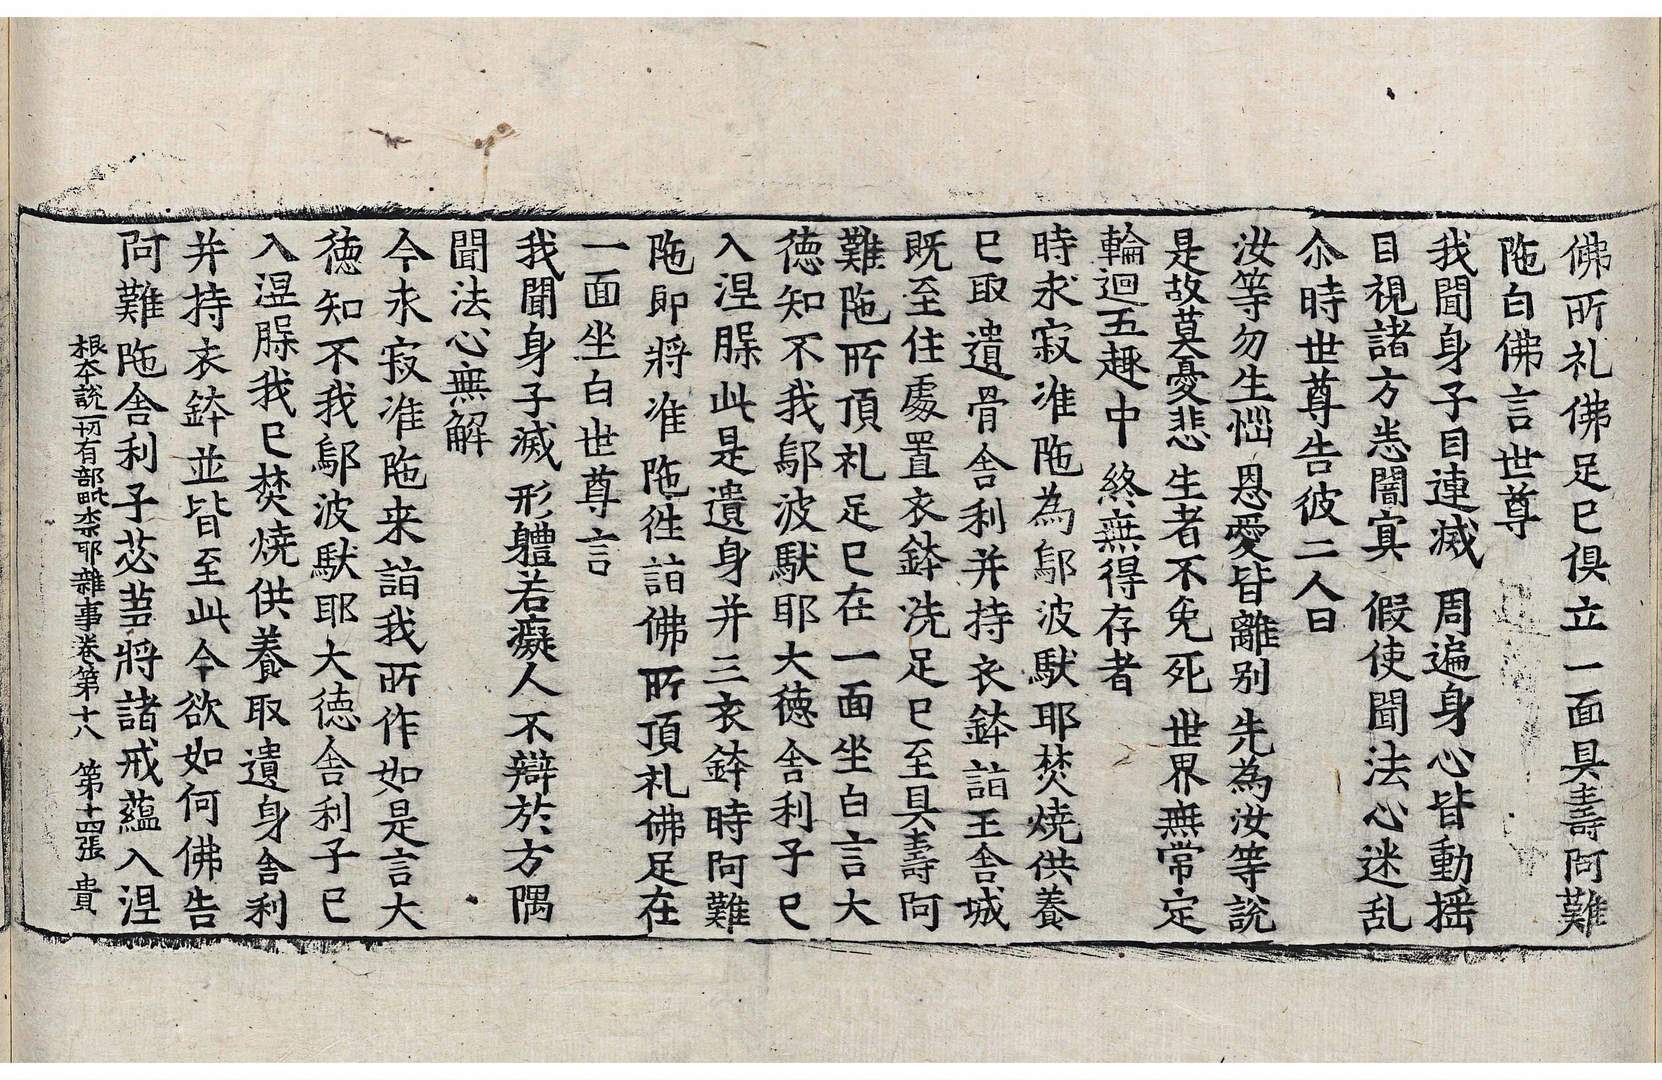 佛所礼佛足已俱立一面具壽阿難
陁白佛言世尊
我聞身子目連滅 周遍身心皆動揺
目視諸方悉闇㝠 假使聞法心迷乱
尒時世尊告彼二人曰
汝等勿生惱 恩愛皆離別 先為汝等說
是故莫憂悲 生者不免死 世界無常定
輪迴五趣中 終無得存者
時求寂准陁為鄔波馱耶焚燒供養
已取遺骨舍利并持衣鉢詣王舍城
既至住處置衣鉢洗足已至具壽阿
難陁所頂礼足已在一面坐白言大
德知不我鄔波馱耶大德舍利子已
入涅槃此是遺身并三衣鉢時阿難
陁即將准陁往詣佛所頂礼佛足在
一面坐白世尊言
我聞身子滅 形體若癡人 不辯於方隅
聞法心無解
今求寂准陁来詣我所作如是言大
德知不我鄔波馱耶大德舍利子已
入涅槃我已焚燒供養取遺身舍利
并持衣鉢並皆至此今欲如何佛告
阿難陁舍利子苾蒭將諸戒蘊入涅
根本說一切有部毗柰耶雜事卷第十八 第十四張 貴